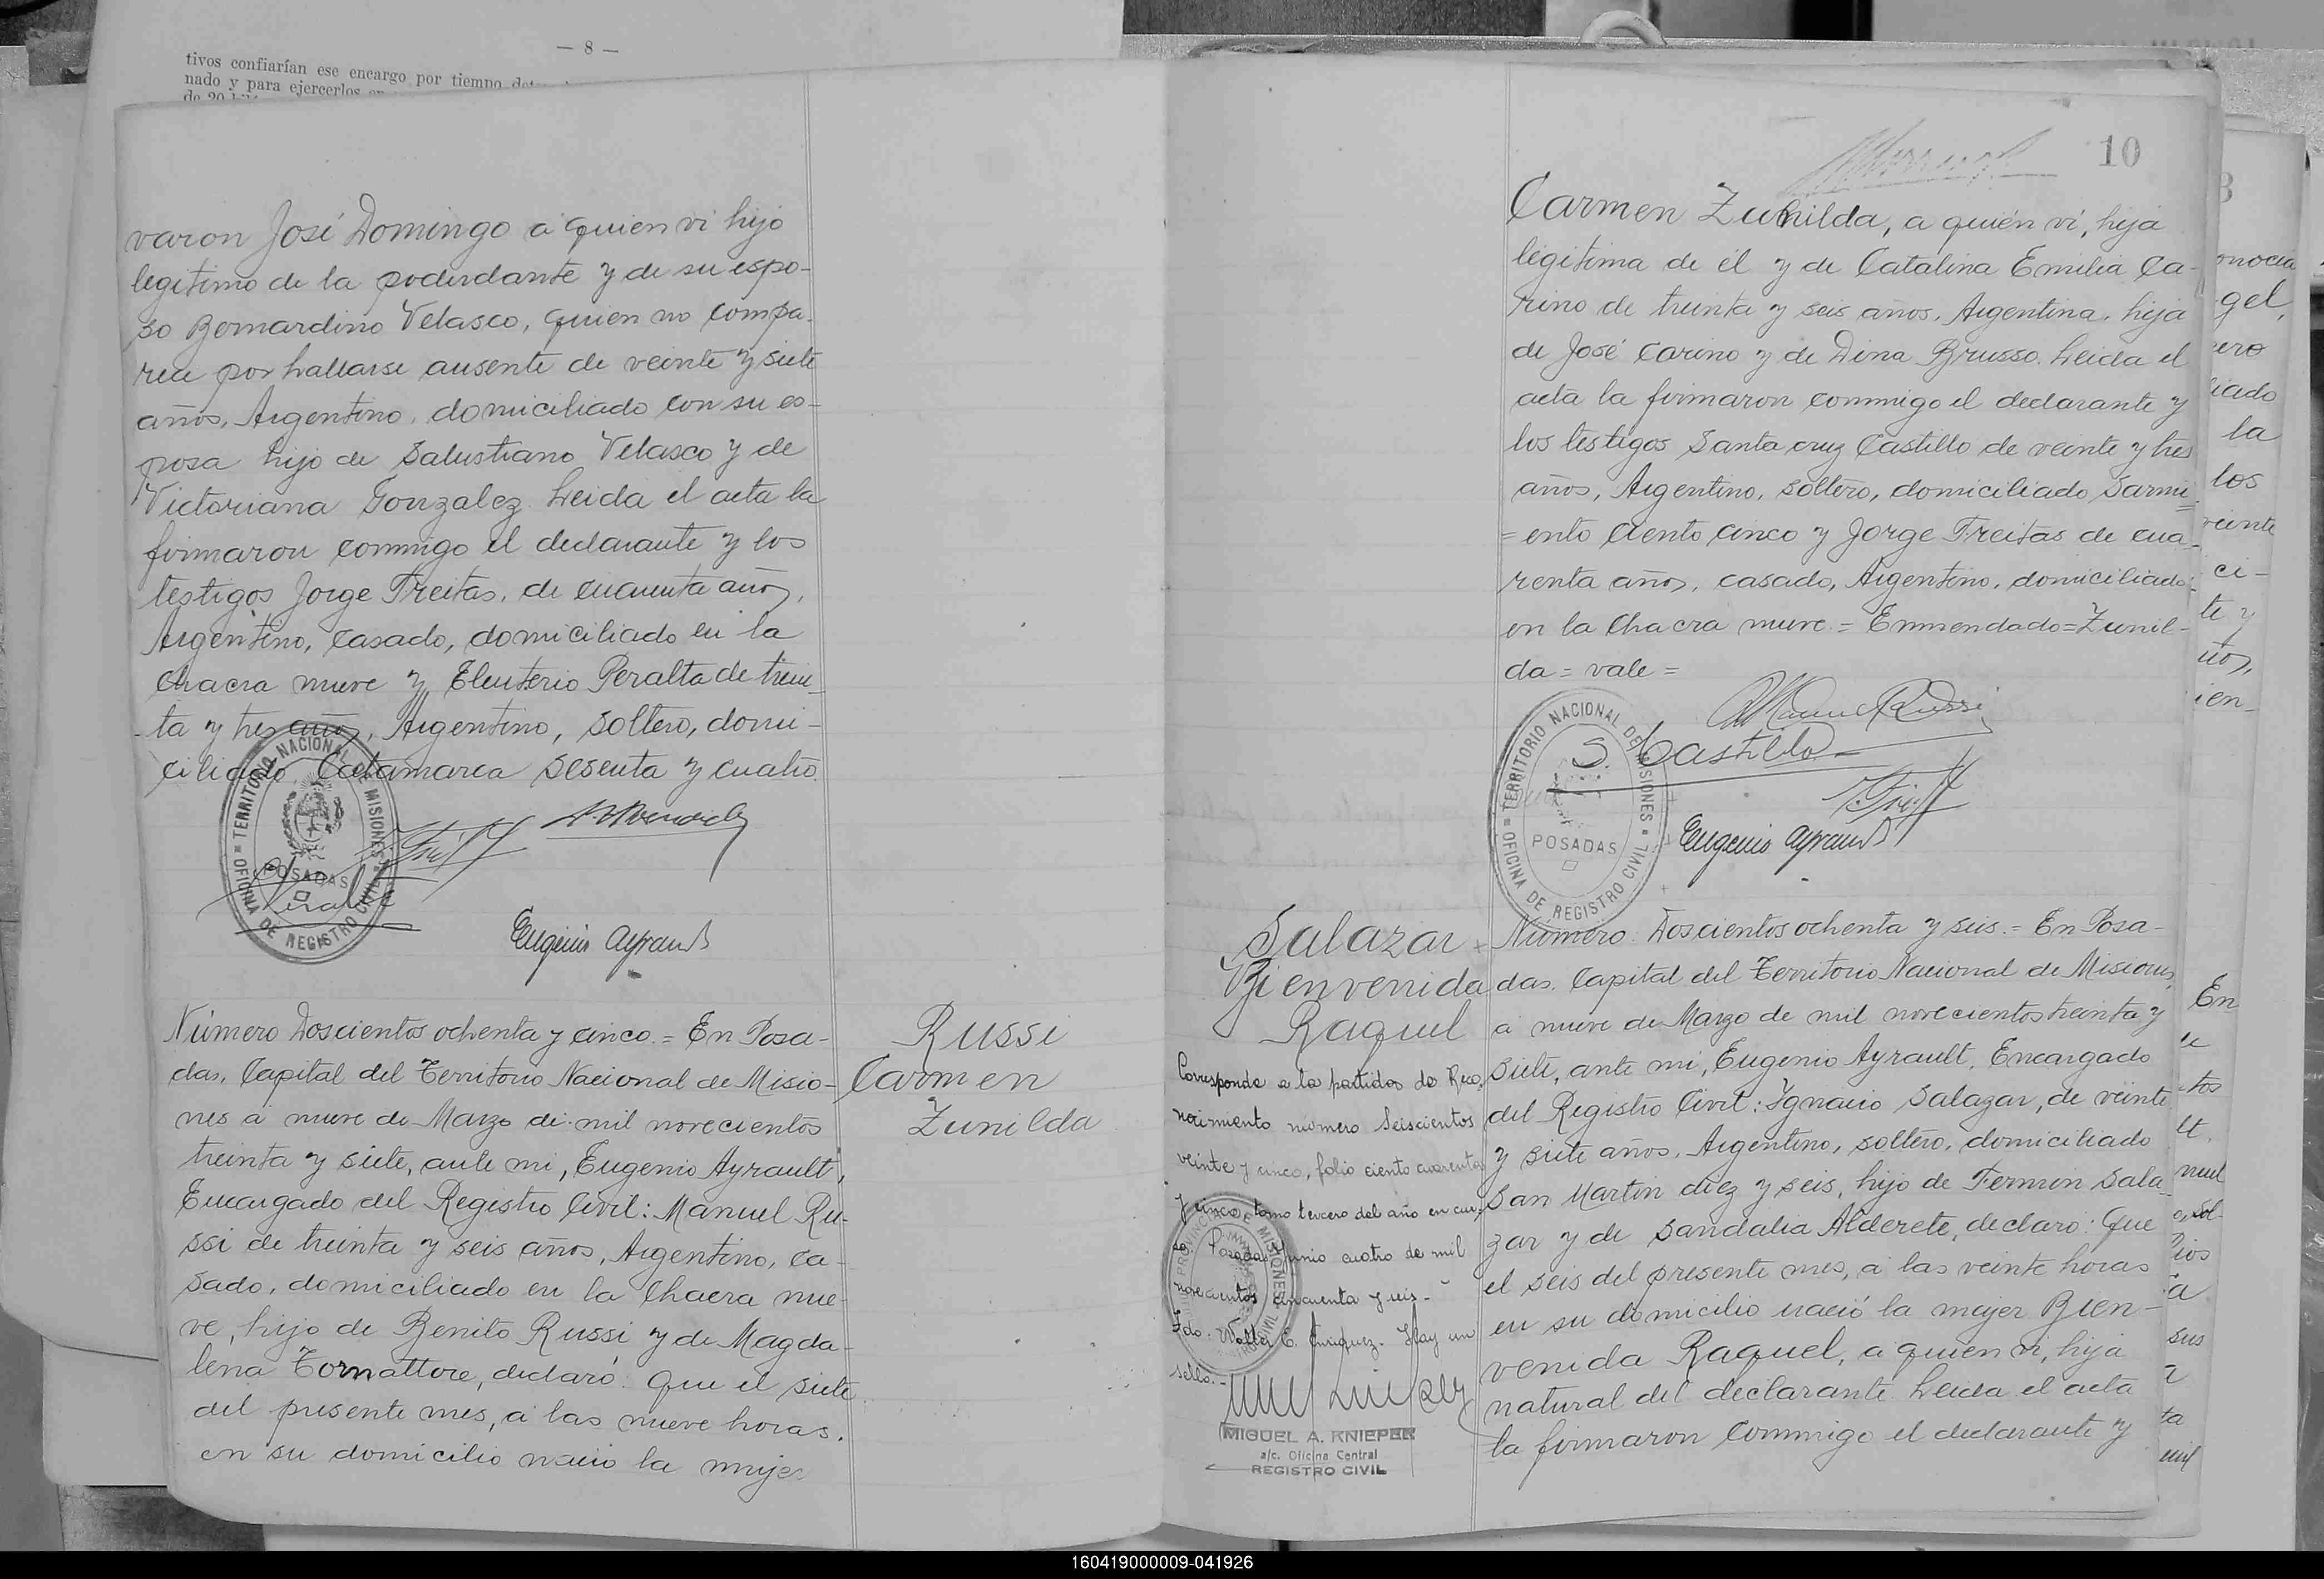 — 8 —
tivos confiarían ese encargo por tiempo
nado y para ejercerlos
varon José Domingo a quien vi hijo
legitimo de la poderdante y de su espo-
so Bernardino Velasco, quien no compa-
rece por hallarse ausente de veinte y siete
años, Argentino, domiciliado con su es-
posa hijo de Salustiano Velasco y de
Victoriana Gonzalez. Leida el acta la
firmaron conmigo el declarante y los
testigos Jorge Freitas, de cuarenta años,
Argentino, casado, domiciliado en la
chacra nueve y Eleuterio Peralta de trein-
ta y tres años, Argentino, soltero, domi-
ciliado Catamarca sesenta y cuatro.
TERRITORIO NACIONAL DE MISIONES
POSADAS
OFICINA DE REGISTRO CIVIL
Peralta
Eugenio Ayrault
Número Doscientos ochenta y cinco. = En Posa-
das, Capital del Territorio Nacional de Misio-
nes a nueve de Marzo de mil novecientos
treinta y siete, ante mi, Eugenio Ayrault,
Encargado del Registro Civil: Manuel Ru-
ssi de treinta y seis años, Argentino, ca-
sado, domiciliado en la Chacra nue-
ve, hijo de Benito Russi y de Magda-
lena Tornattore, declaró: Que el siete
del presente mes, a las nueve horas.
en su domicilio nació la mujer
Russi
Carmen
Zunilda
10
Carmen Zunilda, a quién ví, hija
legitima de él y de Catalina Emilia Ca-
rino de treinta y seis años, Argentina, hija
de José Carino y de Dina Brusso. Leida el
acta la firmaron conmigo el declarante y
los testigos Santa cruz Castillo de veinte y tres
años, Argentino, soltero, domiciliado Sarmi=
=ento ciento cinco y Jorge Freitas de cua-
renta años, casado, Argentino, domiciliado
en la Chacra nueve. = Enmendado=Zunil-
da = vale =
Manuel Russi
S. Castillo
TERRITORIO NACIONAL DE MISIONES
POSADAS
OFICINA DE REGISTRO CIVIL
Eugenio Ayrault
Salazar
Bienvenida
Raquel
Corresponde a la partida de Reco-
nocimiento número Seiscientos
veinte y cinco, folio ciento cuarenta
y cinco, tomo tercero del año en cur-
so. Posadas, Junio cuatro de mil
novecientos cincuenta y seis.-
Fdo. Walter E. Enriquez. Hay un
sello.-
MIGUEL A. KNIEPER
a/c. Oficina Central
REGISTRO CIVIL
Número Doscientos ochenta y seis. = En Posa-
das, Capital del Territorio Nacional de Misiones,
a nueve de Marzo de mil novecientos treinta y
siete, ante mi, Eugenio Ayrault, Encargado
del Registro Civil: Ignacio Salazar, de veinte
y siete años, Argentino, soltero, domiciliado
San Martin diez y seis, hijo de Fermin Sala-
zar y de Sandalia Alderete, declaro: Que
el seis del presente mes, a las veinte horas
en su domicilio nació la mujer Bien-
venida Raquel, a quien vi, hija
natural del declarante. Leida el acta
la firmaron conmigo el declarante y
gel,
la
los
veinte
ci-
te y
ien-
En
sus
ta
mil
160419000009-041926